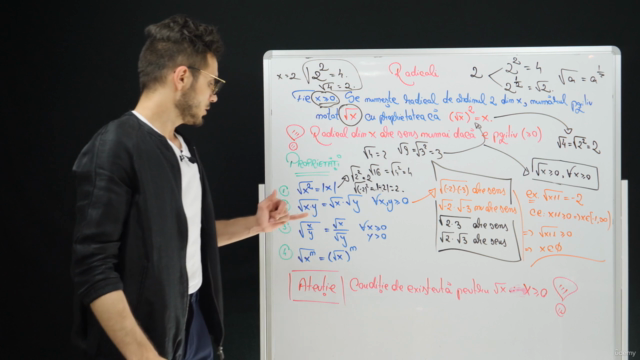 x=2 √2² = 4. √4 = 2.
Radicali
2 < 2² = 4 2^(1/2) = √2.
√a = a^(1/2)
Fie x≥0 Se numește radical de ordinul 2 din x, numărul pozitiv
notat √x cu proprietatea că (√x)² = x.
Radicalul din x are sens numai dacă e pozitiv (≥0)
√4 = √2² = 2
√x≥0, ∀x≥0
Proprietăți
① √x² = |x|
√xy = √x·√y ∀x,y≥0
√x/y = √x/√y ∀x≥0 y>0
④ √x^m = (√x)^m
√(-2)·(-3) are sens
√-2·√-3 are sens
√2·3 are sens
√2·√3 are sens
ex √x+1 = -2
c.e: x+1≥0 ⇒ x∈[-1,∞)
⇒ √x+1 ≥0
⇒ x∈∅
Atenție Condiție de existență pentru √x x≥0